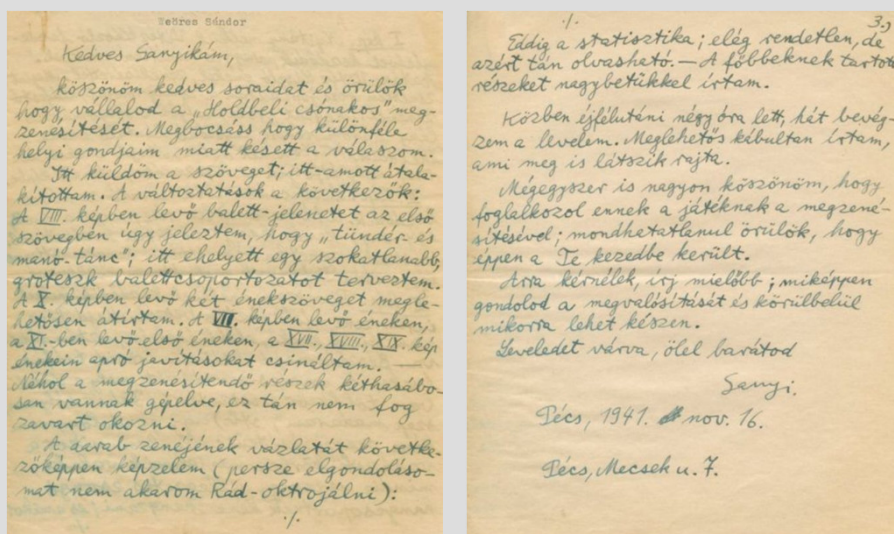 Weöres Sándor
Kedves Sanyikám,
köszönöm kedves soraidat és örülök
hogy vállalod a „Holdbeli csónakos" meg-
zenésítését. Megbocsáss hogy különféle
helyi gondjaim miatt késett a válaszom.
Itt küldöm a szöveget; itt-amott átala-
kítottam. A változtatások a következők:
A VIII. képben levő balett-jelenetet az első
szövegben úgy jeleztem, hogy „tündér- és
manó-tánc"; itt ehelyett egy szokatlanabb,
groteszk balettcsoportozatot terveztem.
A X. képben levő két énekszöveget megle-
hetősen átírtam. A VII. képben levő éneken,
a XI.-ben levő első éneken, a XVII., XVIII., XIX. kép
énekein apró javításokat csináltam. —
Néhol a megzenésítendő részek kéthasábo-
san vannak gépelve, ez tán nem fog
zavart okozni.
A darab zenéjének vázlatát követke-
zőképpen képzelem (persze elgondoláso-
mat nem akarom Rád-oktrojálni):
./.
./. 3.,
Eddig a statisztika; elég rendetlen, de
azért tán olvasható. — A főbbeknek tartott
részeket nagybetűkkel írtam.
Közben éjfélutáni négy óra lett, hát bevég-
zem a levelem. Meglehetős kábultan írtam,
ami meg is látszik rajta.
Mégegyszer is nagyon köszönöm, hogy
foglalkozol ennek a játéknak a megzené-
sítésével; mondhatatlanul örülök, hogy
éppen a Te kezedbe került.
Arra kérnélek, írj mielőbb; miképpen
gondolod a megvalósítását és körülbelül
mikorra lehet készen.
Leveledet várva, ölel barátod
Sanyi.
Pécs, 1941. nov. 16.
Pécs, Mecsek u. 7.